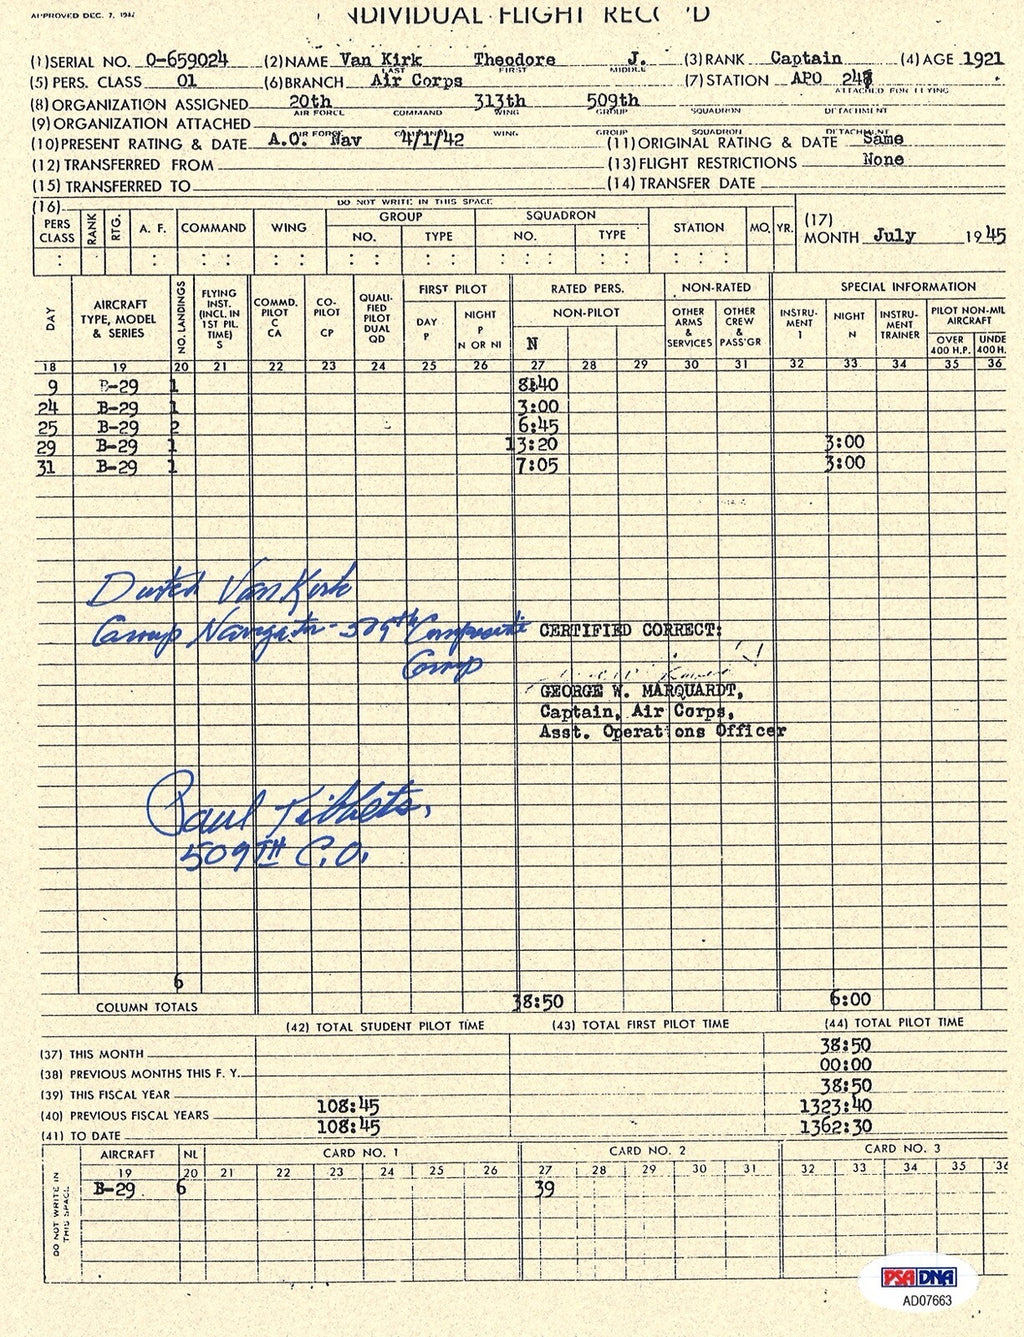 APPROVED DEC. 7, 1942
INDIVIDUAL FLIGHT RECORD
(1) SERIAL NO. O-659024 (2) NAME Van Kirk Theodore J. (3) RANK Captain (4) AGE 1921
LAST FIRST MIDDLE
(5) PERS. CLASS 01 (6) BRANCH Air Corps (7) STATION APO 247
(8) ORGANIZATION ASSIGNED 20th 313th 509th ATTACHED FOR FLYING
AIR FORCE COMMAND WING GROUP SQUADRON DETACHMENT
(9) ORGANIZATION ATTACHED
AIR FORCE COMMAND WING GROUP SQUADRON DETACHMENT
(10) PRESENT RATING & DATE A.O. Nav 4/1/42 (11) ORIGINAL RATING & DATE Same
(12) TRANSFERRED FROM (13) FLIGHT RESTRICTIONS None
(15) TRANSFERRED TO (14) TRANSFER DATE
(16) DO NOT WRITE IN THIS SPACE
PERS CLASS RANK RTG. A. F. COMMAND WING GROUP NO. TYPE SQUADRON NO. TYPE STATION MO. YR. (17) MONTH July 1945
DAY AIRCRAFT TYPE, MODEL & SERIES NO. LANDINGS FLYING INST. (INCL. IN 1ST PIL. TIME) S COMMD. PILOT C CA CO-PILOT CP QUALI-FIED PILOT DUAL QD FIRST PILOT DAY P NIGHT P N OR NI RATED PERS. NON-PILOT N NON-RATED OTHER ARMS & SERVICES OTHER CREW & PASS'GR SPECIAL INFORMATION INSTRU-MENT I NIGHT N INSTRU-MENT TRAINER PILOT NON-MIL AIRCRAFT OVER 400 H.P. UNDE 400 H.
18 19 20 21 22 23 24 25 26 27 28 29 30 31 32 33 34 35 36
9 B-29 1 8:40
24 B-29 1 3:00
25 B-29 2 6:45
29 B-29 1 13:20 3:00
31 B-29 1 7:05 3:00
Dutch Van Kirk
Group Navigator - 509th Composite
Group
CERTIFIED CORRECT:
GEORGE W. MARQUARDT,
Captain, Air Corps,
Asst. Operations Officer
Paul Tibbets,
509TH C.O.
6
COLUMN TOTALS 38:50 6:00
(42) TOTAL STUDENT PILOT TIME (43) TOTAL FIRST PILOT TIME (44) TOTAL PILOT TIME
(37) THIS MONTH 38:50
(38) PREVIOUS MONTHS THIS F. Y. 00:00
(39) THIS FISCAL YEAR 38:50
(40) PREVIOUS FISCAL YEARS 108:45 1323:40
(41) TO DATE 108:45 1362:30
DO NOT WRITE IN THIS SPACE
AIRCRAFT NL CARD NO. 1 CARD NO. 2 CARD NO. 3
19 20 21 22 23 24 25 26 27 28 29 30 31 32 33 34 35 36
B-29 6 39
PSA DNA
AD07663